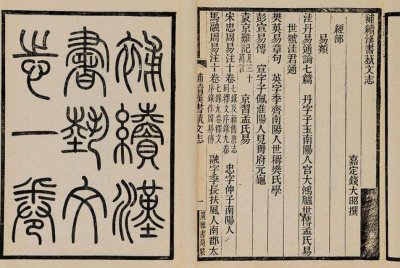 補續漢書藝文志
嘉定錢大昭撰
經部
易類
洼丹易通論七篇 丹字子玉南陽人官大鴻臚世傳孟氏易
世號洼君通
樊英易章句 英字季齊南陽人世稱樊氏學
彭宣易傳 宣字子佩淮陽人見冊府元龜
袁京難記 京習孟氏易
宋忠周易注十卷 忠字仲子南陽人
馬融周易注十卷 融字季長扶風人南郡太
補續漢書藝文志
補續漢
書藝文
志一卷